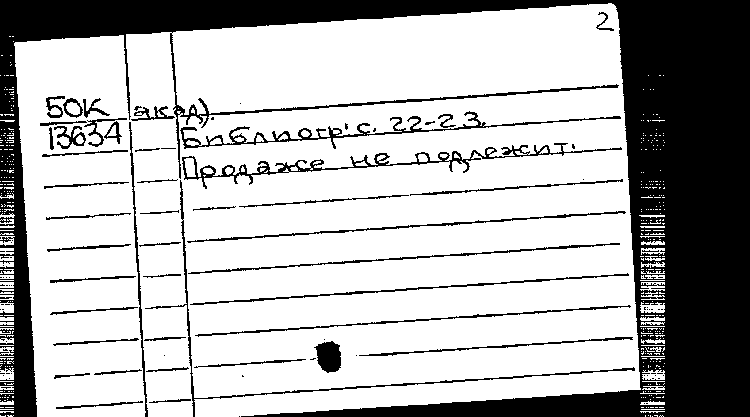 2
50К акад).
13634 Библиогр: с. 22-23.
Продаже не подлежит.